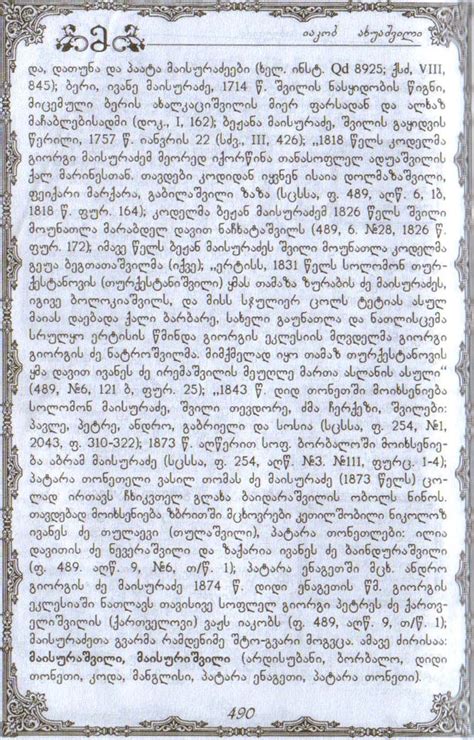 იაკობ ახუაშვილი
და, დათუნა და პაატა მაისურაძეები (ხელ. ინსტ. Qd 8925; ქსძ, VIII,
845); ბერი, ივანე მაისურაძე, 1714 წ. შვილის ნასყიდობის წიგნი,
მიცემული ბერის ახალკაციშვილის მიერ ფარსადან და ალხაზ
მაჩაბლებისადმი (დოკ., I, 162); ბეჟანა მაისურაძე, შვილის გაყიდვის
წერილი, 1757 წ. იანვრის 22 (სძვ., III, 426); „1818 წელს კოდელმა
გიორგი მაისურაძემ მეორედ იქორწინა თანასოფლელ ადუაშვილის
ქალ მარინესთან. თავდები კოდიდან იყვნენ ისაია დოლმაზაშვილი,
ფეიქარი მარქარა, გაბილაშვილი ზაზა (სცსსა, ფ. 489, აღწ. 6, 1ბ,
1818 წ. ფურ. 164); კოდელმა ბეჟან მაისურაძემ 1826 წელს შვილი
მოუნათლა მარაბდელ დავით ნაჩხატაშვილს (489, 6. №28, 1826 წ.
ფურ. 172); იმავე წელს ბეჟან მაისურაძეს შვილი მოუნათლა კოდელმა
გეუა ბეგთათაშვილმა (იქვე); „ერტისს, 1831 წელს სოლომონ თურ-
ქესტანოვის (თურქესტანიშვილი) ყმას თამაზა ზურაბის ძე მაისურაძეს,
იგივე ბოლოკიაშვილს, და მისს სჯულიერ ცოლს ტეტიას ასულ
მაიას დაებადა ქალი ბარბარე, სახელი გაუნათლა და ნათლისცემა
სრულყო ერტისის წმინდა გიორგის ეკლესიის მღვდელმა გიორგი
გიორგის ძე ნატროშვილმა. მიმქმელად იყო თამაზ თურქესტანოვის
ყმა დავით ივანეს ძე ირემაშვილის მეუღლე მართა ასლანის ასული“
(489, №6, 121 ბ, ფურ. 25); „1843 წ. დიდ თონეთში მოიხსენიება
სოლომონ მაისურაძე, შვილი თევდორე, ძმა ჩერქეზი, შვილები:
პავლე, პეტრე, ანდრო, გაბრიელი და სოსია (სცსსა, ფ. 254, №1,
2043, ფ. 310-322); 1873 წ. აღწერით სოფ. ბორბალოში მოიხსენიე-
ბა აბრამ მაისურაძე (სცსსა, ფ. 254, აღწ. №3. №111, ფურც. 1-4);
პატარა თონეთელი ვასილ თომას ძე მაისურაძე (1873 წელს) ცო-
ლად ირთავს ჩხიკვთელ გლახა ბაიდარაშვილის ობოლს ნინოს.
თავდებად მოიხსენიება ზბრითში მცხოვრები კეთილშობილი ნიკოლოზ
ივანეს ძე თულაევი (თულაშვილი), პატარა თონეთლები: ილია
დავითის ძე ნევერაშვილი და ზაქარია ივანეს ძე ბაინდურაშვილი
(ფ. 489. აღწ. 9, №6, თ/წ. 1); პატარა ენაგეთში მცხ. ანდრო
გიორგის ძე მაისურაძე 1874 წ. დიდი ენაგეთის წმ. გიორგის
ეკლესიაში ნათლავს თავისივე სოფლელ გიორგი პეტრეს ძე ქართვ-
ელიშვილის (ქართველოვი) ვაჟს იაკობს (ფ. 489, აღწ. 9, თ/წ. 1);
მაისურაძეთა გვარმა რამდენიმე შტო-გვარი მოგვცა. ამავე ძირისაა:
მაისურაშვილი, მაისურიშვილი (არდისუბანი, ბორბალო, დიდი
თონეთი, კოდა, მანგლისი, პატარა ენაგეთი, პატარა თონეთი).
490